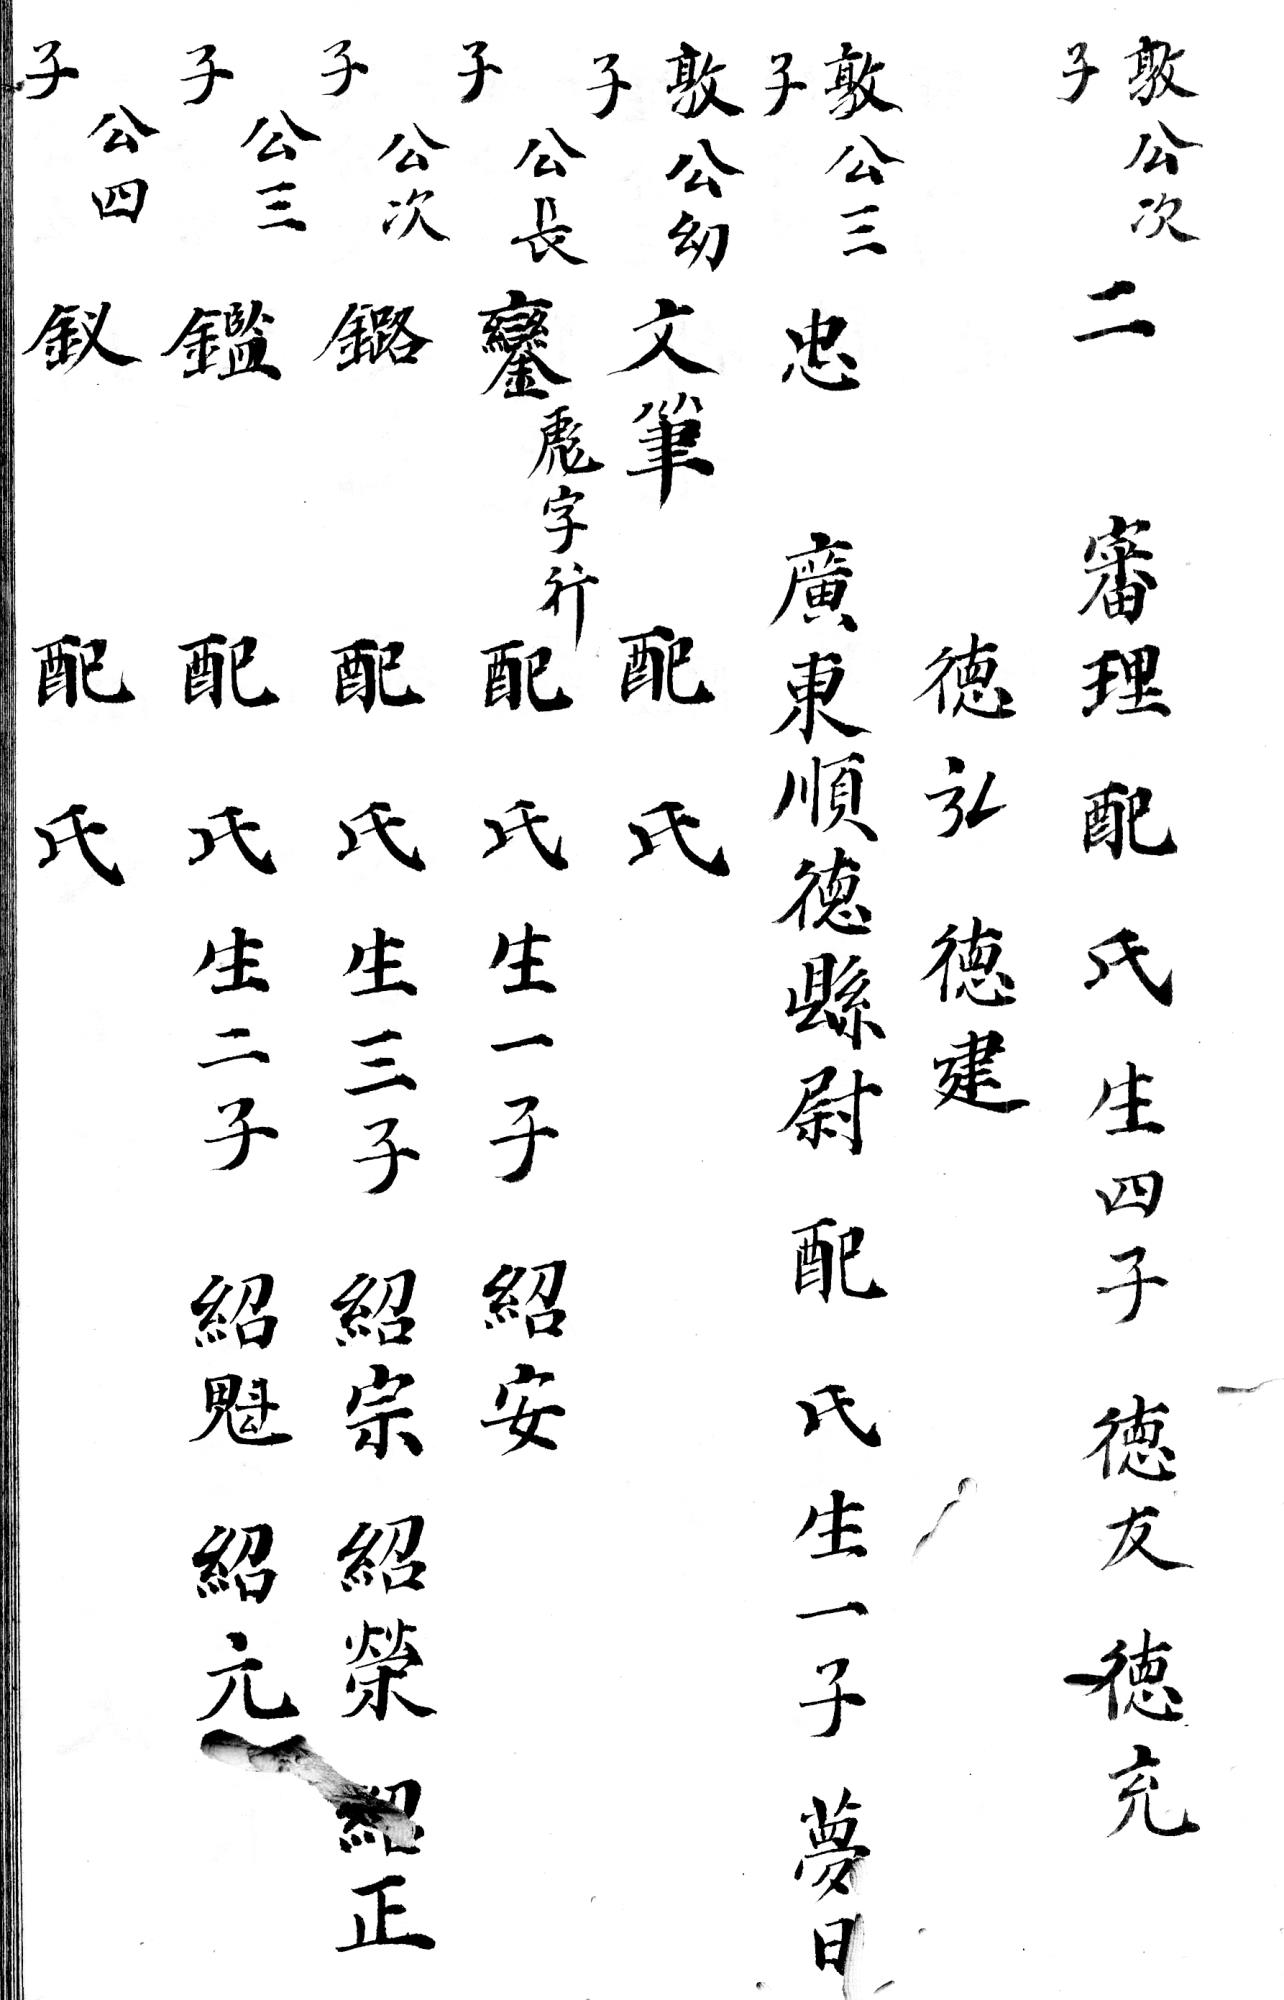 敦公次子 二 審理配 氏 生四子 德友 德充
德弘 德建
敦公三子 忠 廣東順德縣尉 配 氏生一子 夢日
敦公幼子 文筆 配 氏
公長子 鑾 彪字行 配 氏生一子 紹安
公次子 鏴 配 氏生三子 紹宗 紹榮 紹正
公三子 鑑 配 氏生二子 紹魁 紹元
公四子 釵 配 氏